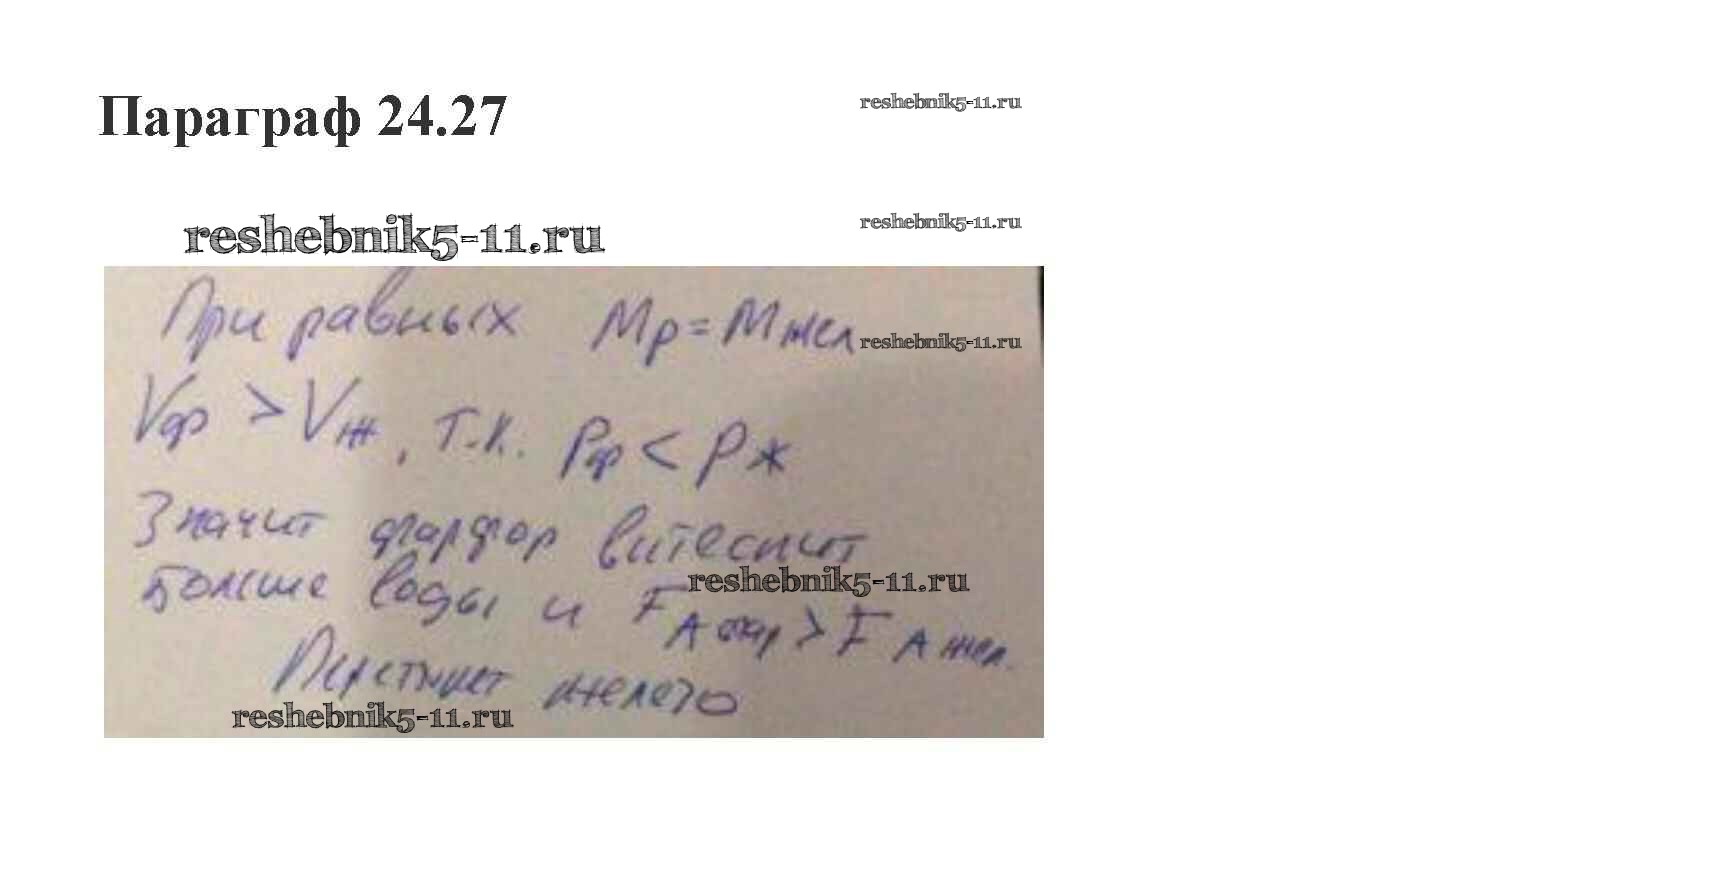 Параграф 24.27
reshebnik5-11.ru
reshebnik5-11.ru
reshebnik5-11.ru
При равных Mр = Mжел
reshebnik5-11.ru
Vф > Vж, т.к. ρф < ρж
Значит фарфор витеснит
reshebnik5-11.ru
больше воды и FА фар > FА жел.
Перетянет железо
reshebnik5-11.ru